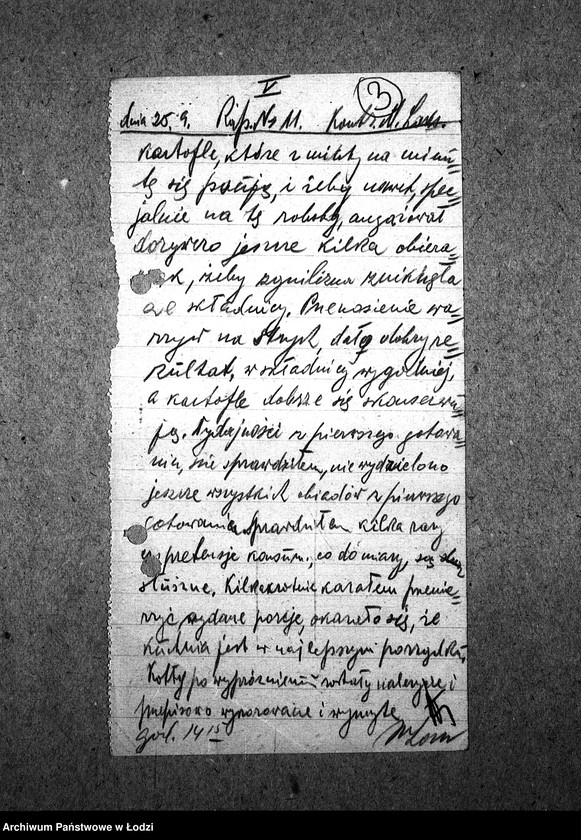 V
3
dnia 25.9. Rap. No 11. Kontr. M.
kartofle, które z minuty na minu=
tę się psują, i żeby nawet, spec=
jalnie na tę robotę, angażować
dorywczo jeszcze kilka obiera=
ek, żeby zgnilizna zniknęła
ze składnicy. Przenoszenie wa=
rzyw na strych, dało dobry re=
zultat, w składnicy wygodniej,
a kartofle dobrze się konserwu=
ją. Wydajności z pierwszego gotowa=
nia, nie sprawdziłem, nie wydzielono
jeszcze wszystkich obiadów z pierwszego
gotowania. Sprawdziłem kilka razy
pretensje konsum., co do miary, są
słuszne. Kilkakrotnie kazałem przemie=
rzyć wydane porcje, okazało się, że
kuchnia jest w najlepszym porządku.
Kotły po wypróżnieniu zostały należycie i
przepisowo wyszorowane i wymyte
god. 14 15